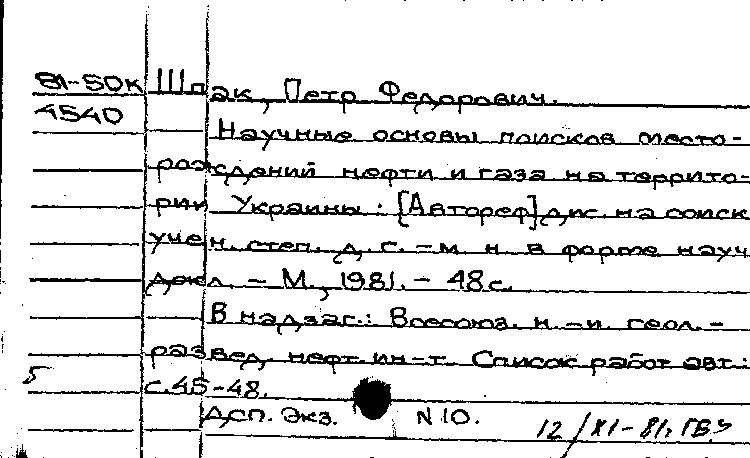 81-50к Шпак, Петр Федорович.
4540
Научные основы поисков место-
рождений нефти и газа на террито-
рии Украины : [Автореф] дис. на соиск
учен. степ. д. г. -м. н. в форме науч
докл. - М., 1981. - 48 с.
В надзаг.: Всесоюз. н.-и. геол.-
развед. нефт. ин-т. Список работ авт.:
5 с.45-48.
ДСП. Экз. N 10.
12/XI-81.